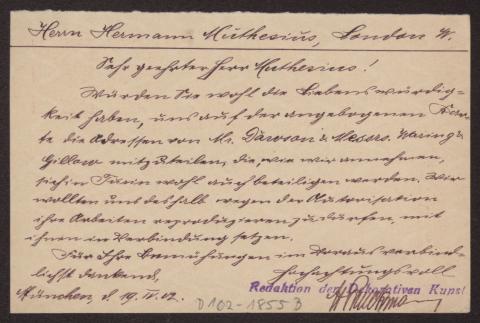 Herrn Hermann Muthesius, London W.
Sehr geehrter Herr Muthesius!
Würden Sie wohl die Liebenswürdig=
keit haben, uns auf der angebogenen Kar=
te die Adressen von Mr. Dawson & Messrs. Waring &
Gillow mitzuteilen, die, wie wir annehmen,
sich in Turin wohl auch beteiligen werden. Wir
wollten uns deshalb wegen der Autorisation
ihre Arbeiten reproduzieren zu dürfen, mit
ihnen in Verbindung setzen.
Für Ihre Bemühungen im Voraus verbind=
lichst dankend,
Hochachtungsvoll
Redaktion der Dekorativen Kunst
München, d. 19. IV. 02.
D 102-1855 B